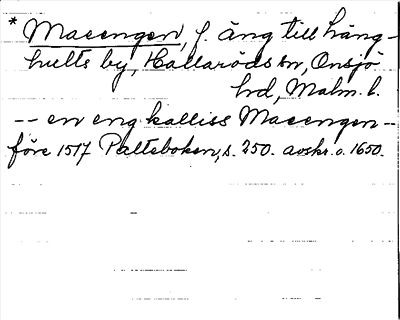 * Macengen, f. äng till Häng-
hults by, Hallaröds sn, Onsjö
hd, Malm. l.
-- en eng kalliss Macengen --
före 1517 Palteboken, s. 250. avskr. o. 1650.